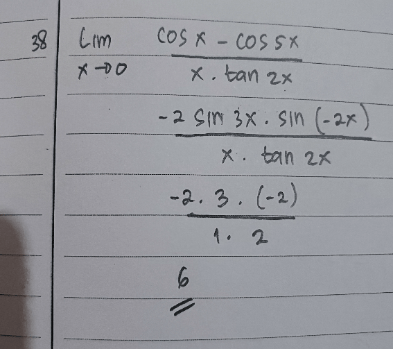 38 Lim cos x - cos 5x
x→0 x . tan 2x
-2 sin 3x . sin (-2x)
x . tan 2x
-2 . 3 . (-2)
1 . 2
6